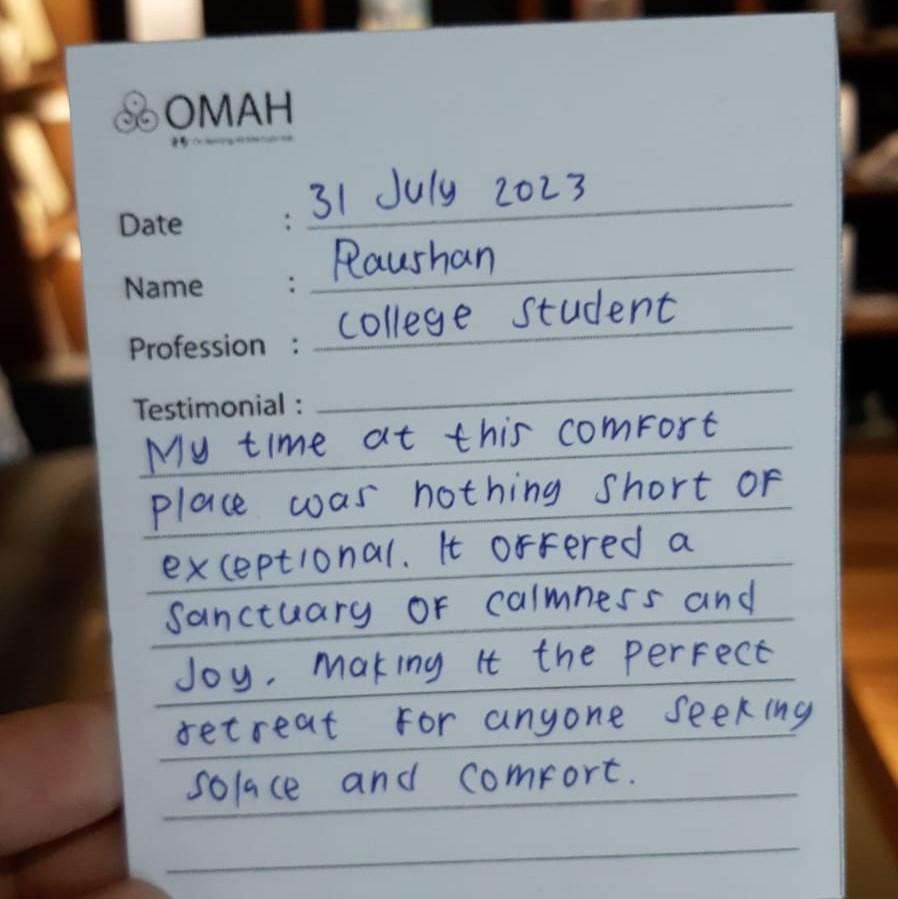 OMAH
Date : 31 July 2023
Name : Raushan
Profession : college student
Testimonial :
My time at this comfort
place was nothing short of
exceptional. It offered a
sanctuary of calmness and
Joy. Making it the perfect
retreat for anyone seeking
solace and comfort.